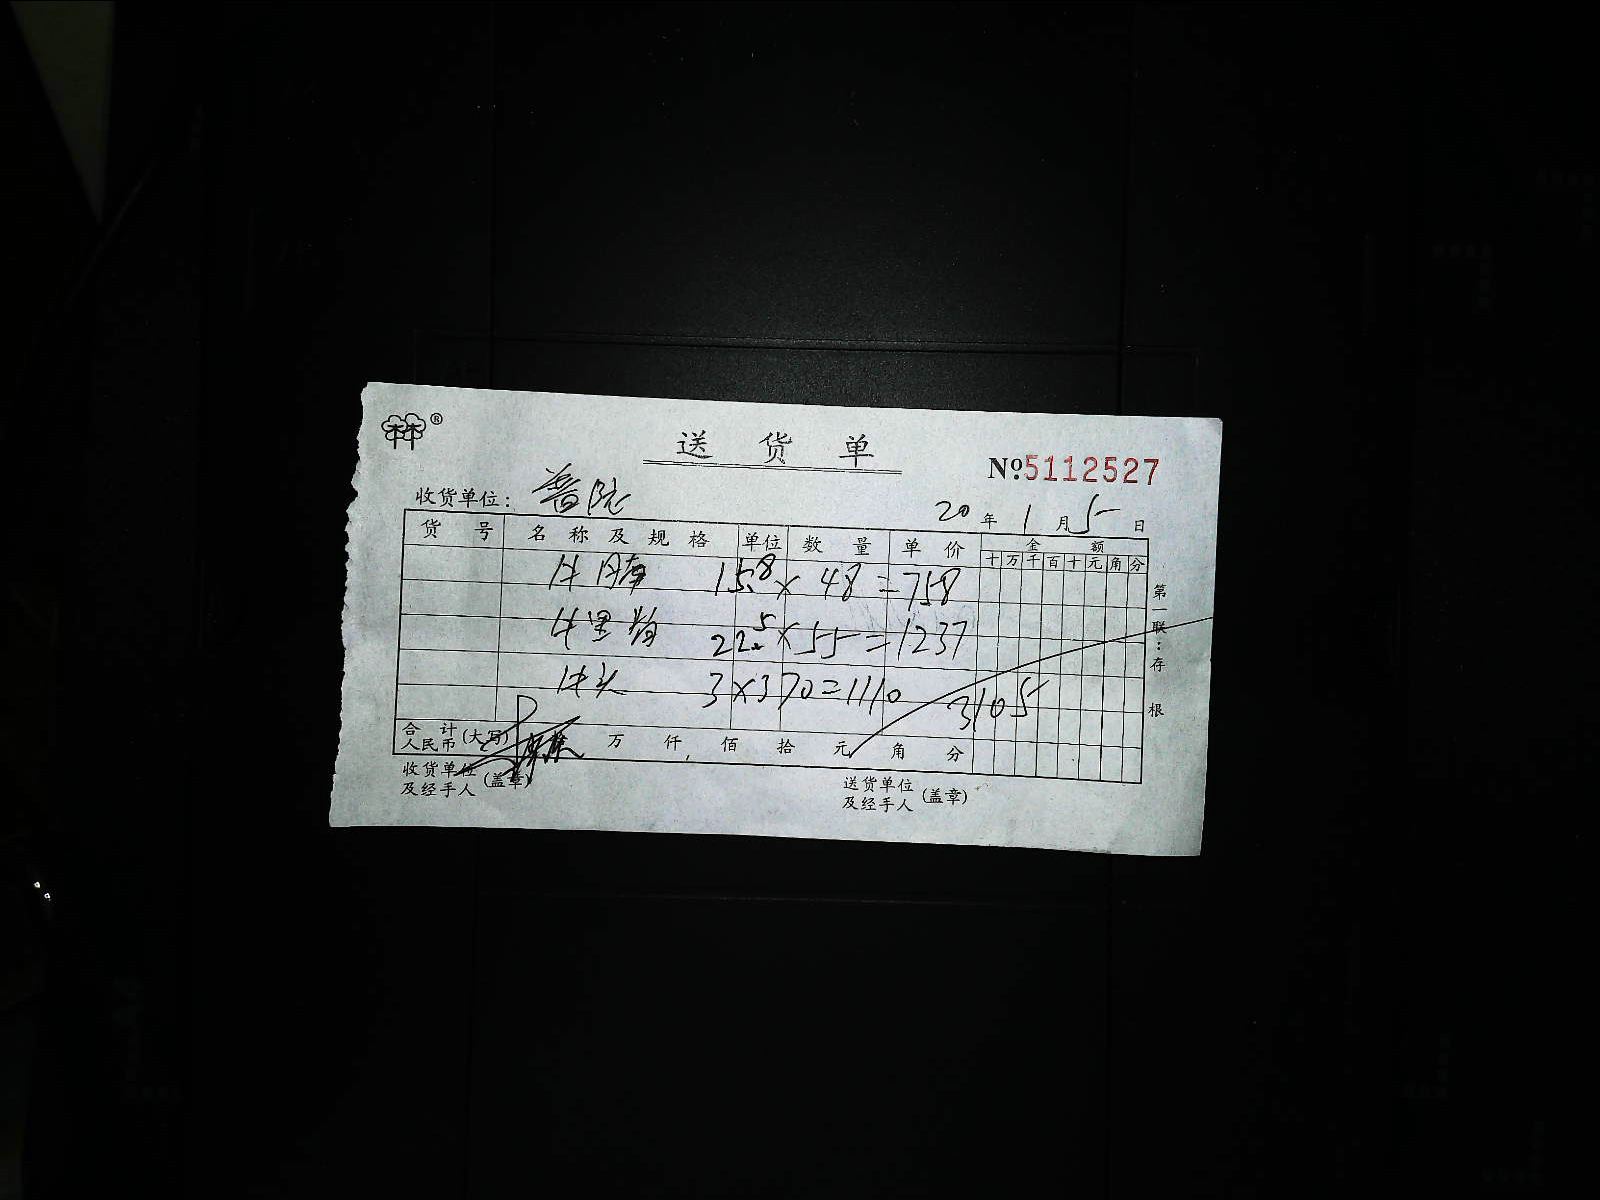 林®
送 货 单
No.5112527
收货单位: 普陀
20 年 1 月 5 日
货 号 名 称 及 规 格 单位 数 量 单 价 金 额
十 万 千 百 十 元 角 分
牛腩 15.8 × 48 = 758
牛里脊 22.5 × 55 = 1237
牛头 3 × 370 = 1110
3105
合 计
人民币 (大写) 万 仟 佰 拾 元 角 分
收货单位
及经手人 (盖章)
送货单位
及经手人 (盖章)
第一联:存根